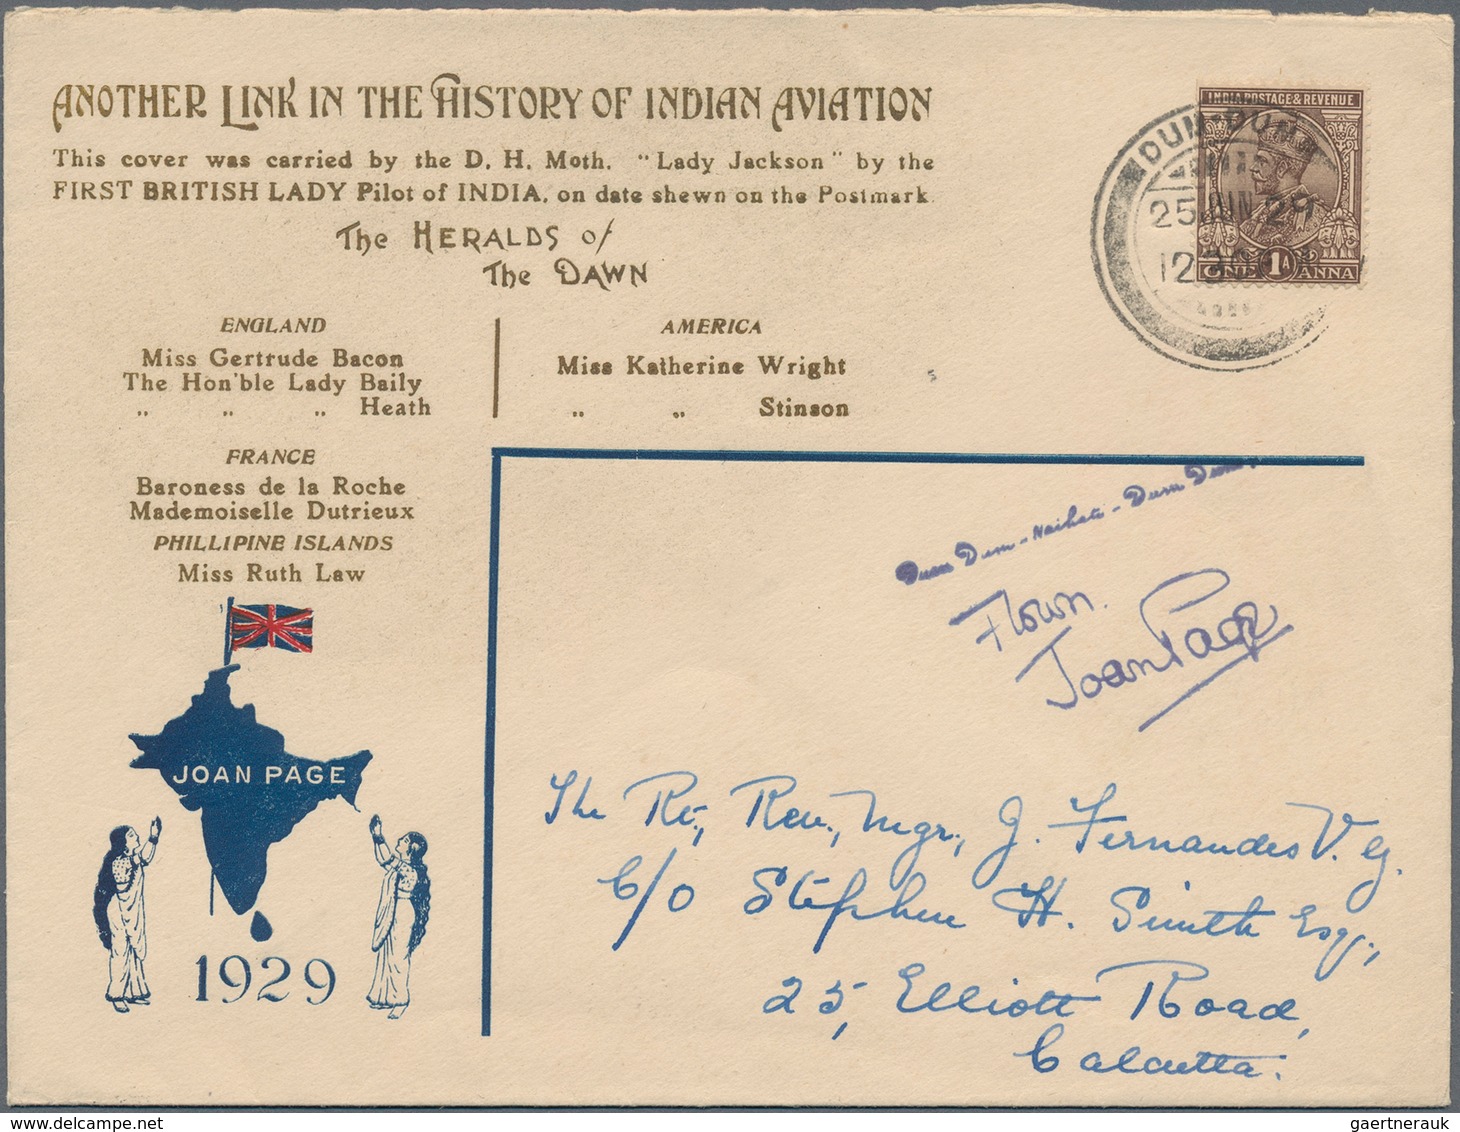 ANOTHER LINK IN THE HISTORY OF INDIAN AVIATION
This cover was carried by the D. H. Moth. "Lady Jackson" by the
FIRST BRITISH LADY Pilot of INDIA, on date shewn on the Postmark.
The HERALDS of
The DAWN
ENGLAND
Miss Gertrude Bacon
The Hon'ble Lady Baily
,, ,, ,, Heath
AMERICA
Miss Katherine Wright
,, ,, Stinson
FRANCE
Baroness de la Roche
Mademoiselle Dutrieux
PHILLIPINE ISLANDS
Miss Ruth Law
JOAN PAGE
1929
INDIA POSTAGE & REVENUE
ONE 1A ANNA
DUM-DUM
25 JUN 29
12 30
Dum Dum - Naihati - Dum Dum.
Flown.
Joan Page
The Rt., Rev., Mgr., J. Fernandes V. G.
C/O Stephen H. Smith Esq.,
25, Elliott Road,
Calcutta.
gaertnerauk